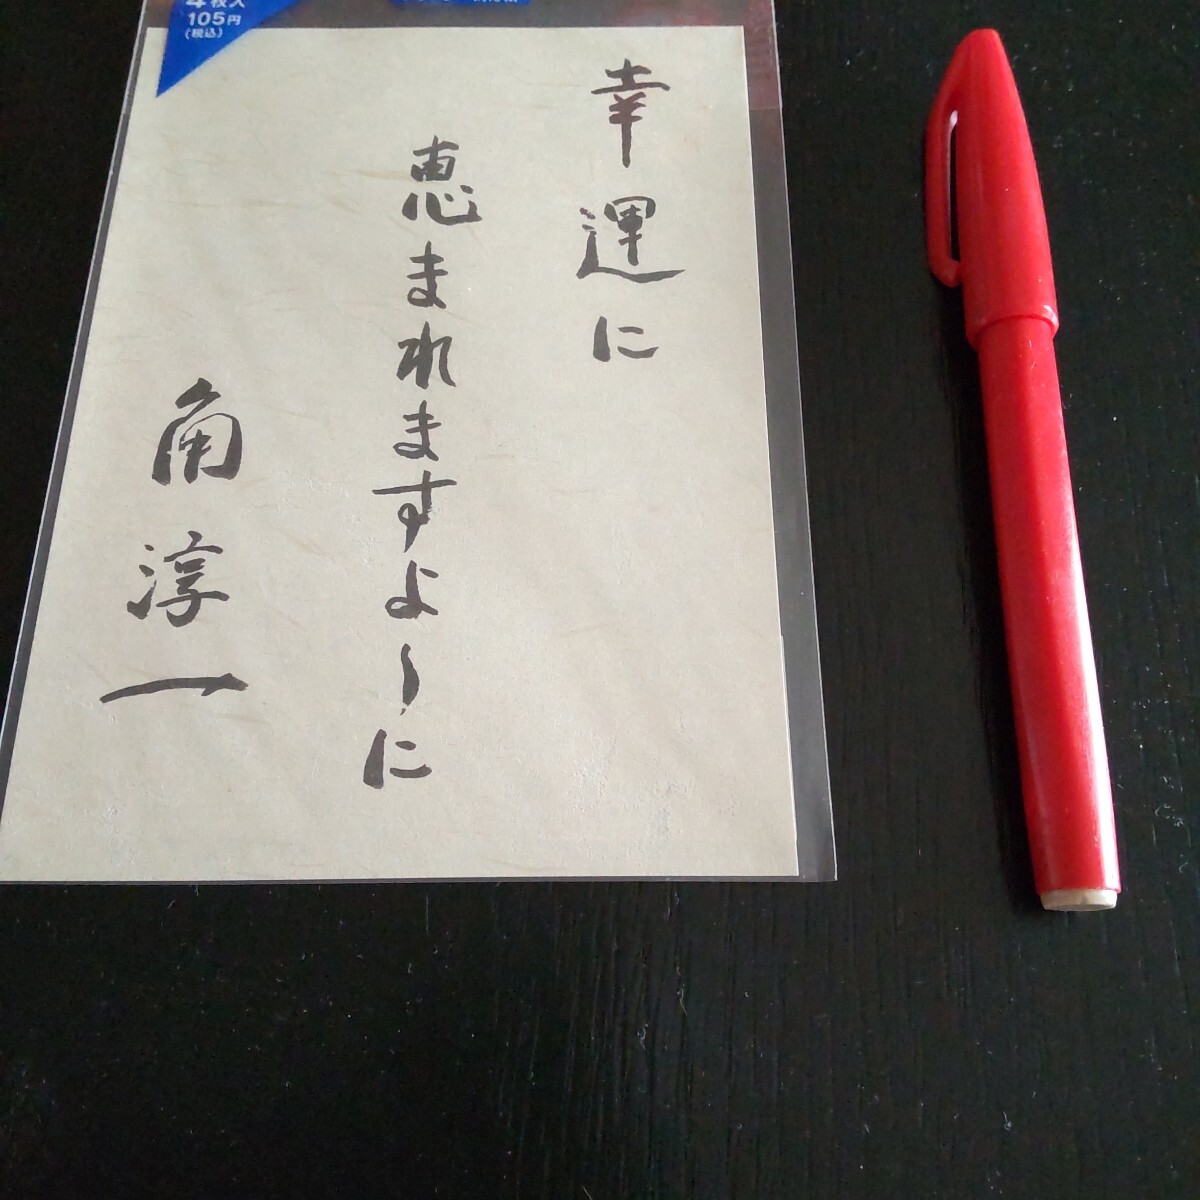 4枚入
105円
(税込)
幸運に
恵まれますよ〜に
角淳一